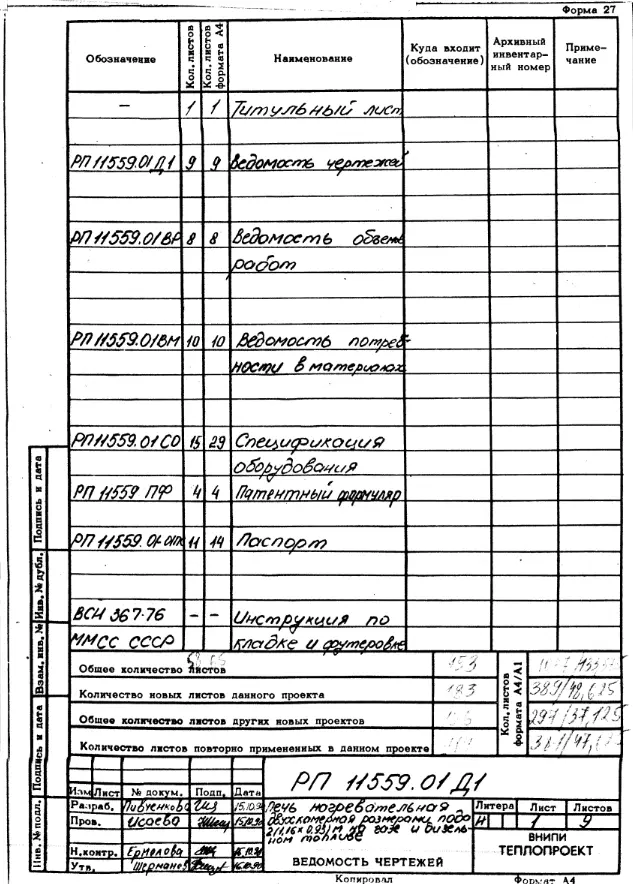 Форма 27
Обозначение Кол. листов Кол. листов формата А4 Наименование Куда входит (обозначение) Архивный инвентарный номер Примечание
— 1 1 Титульный лист
РП 11559.01Д1 9 9 Ведомость чертежей
РП 11559.01ВР 8 8 Ведомость объем
работ
РП 11559.01ВМ 10 10 Ведомость потреб-
ности в материалах
РП 11559.01СО 15 29 Спецификация
оборудования
РП 11559 ПФ 4 4 Патентный формуляр
РП 11559.01 11 14 Паспорт
ВСН 367-76 – – Инструкция по
ММСС СССР кладке и футеровке
Общее количество листов 153
Количество новых листов данного проекта 183 389/48,625
Общее количество листов других новых проектов 297/37,125
Количество листов повторно примененных в данном проекте
Кол. листов формата А4/А1
Подпись и дата
Инв. № дубл.
Взам. инв. №
Подпись и дата
Инв. № подл.
РП 11559.01Д1
Изм Лист № докум. Подп. Дата
Разраб. Пивченкова 15.10.90
Пров. Исаева 15.10.90
Н.контр. Ермолова
Утв. Шерманов
Печь нагревательная
двухкамерная размерами пода
2(1,16х0,93)м на газе и дизель-
ном топливе
ВЕДОМОСТЬ ЧЕРТЕЖЕЙ
Литера Лист Листов
И 1 9
ВНИПИ
ТЕПЛОПРОЕКТ
Копировал Формат А4